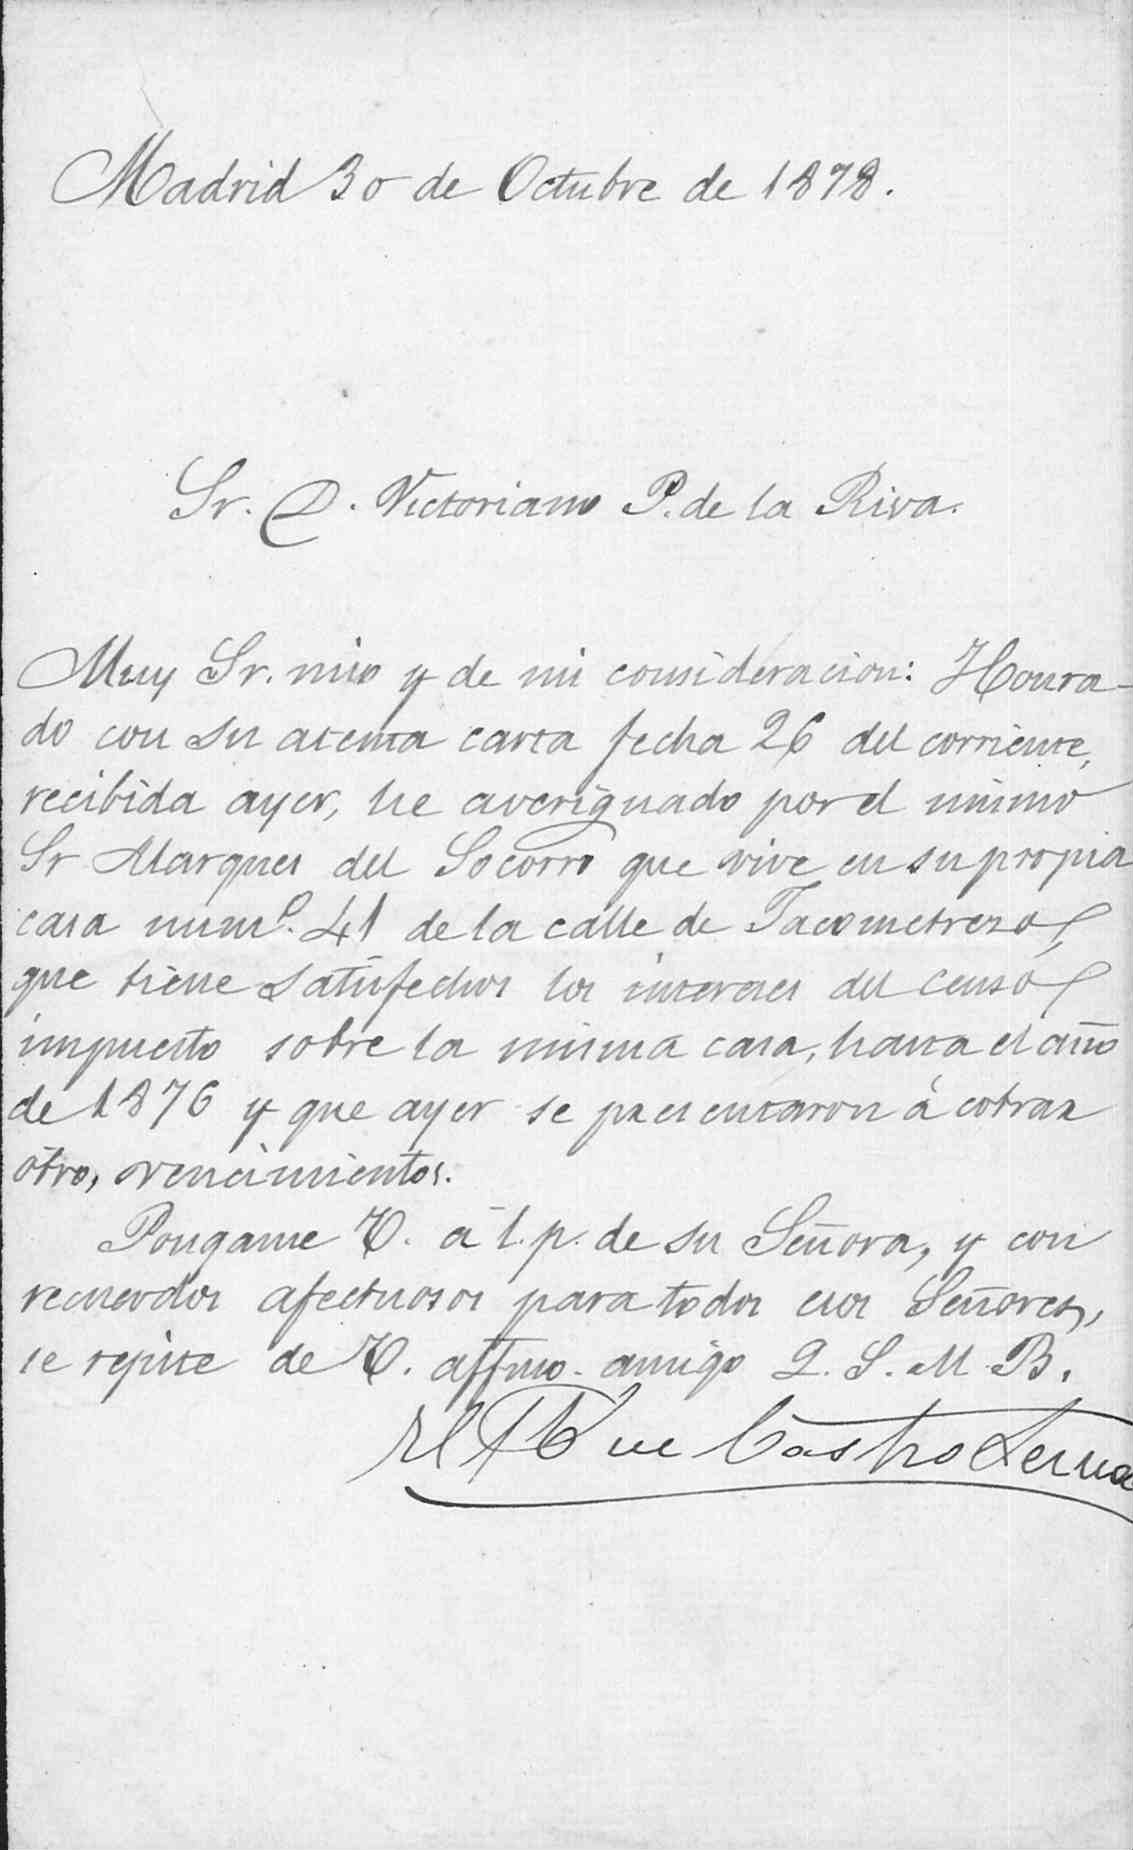 Madrid 30 de Octubre de 1878.
Sr. D. Victoriano P. de la Riva.
Muy Sr. mio y de mi consideracion: Honra-
do con su atenta carta fecha 26 del corriente,
recibida ayer, he averiguado por el mismo
Sr Marques del Socorro que vive en su propia
casa numº. 41 de la calle de Jacometrezo,
que tiene satisfechos los intereses del censo
impuesto sobre la misma casa, hasta el año
de 1876 y que ayer se presentaron á cobrar
otros vencimientos.
Pongame V. á l. p. de su Señora, y con
recuerdos afectuosos para todos esos Señores,
se repite de V. affmo. amigo Q. S. M. B.
El M de Castro Serna